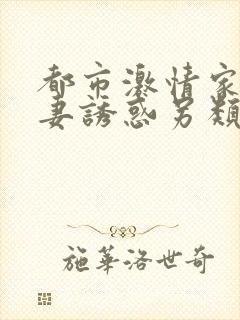 都市激情家
妻誘惑另類
施華洛世奇